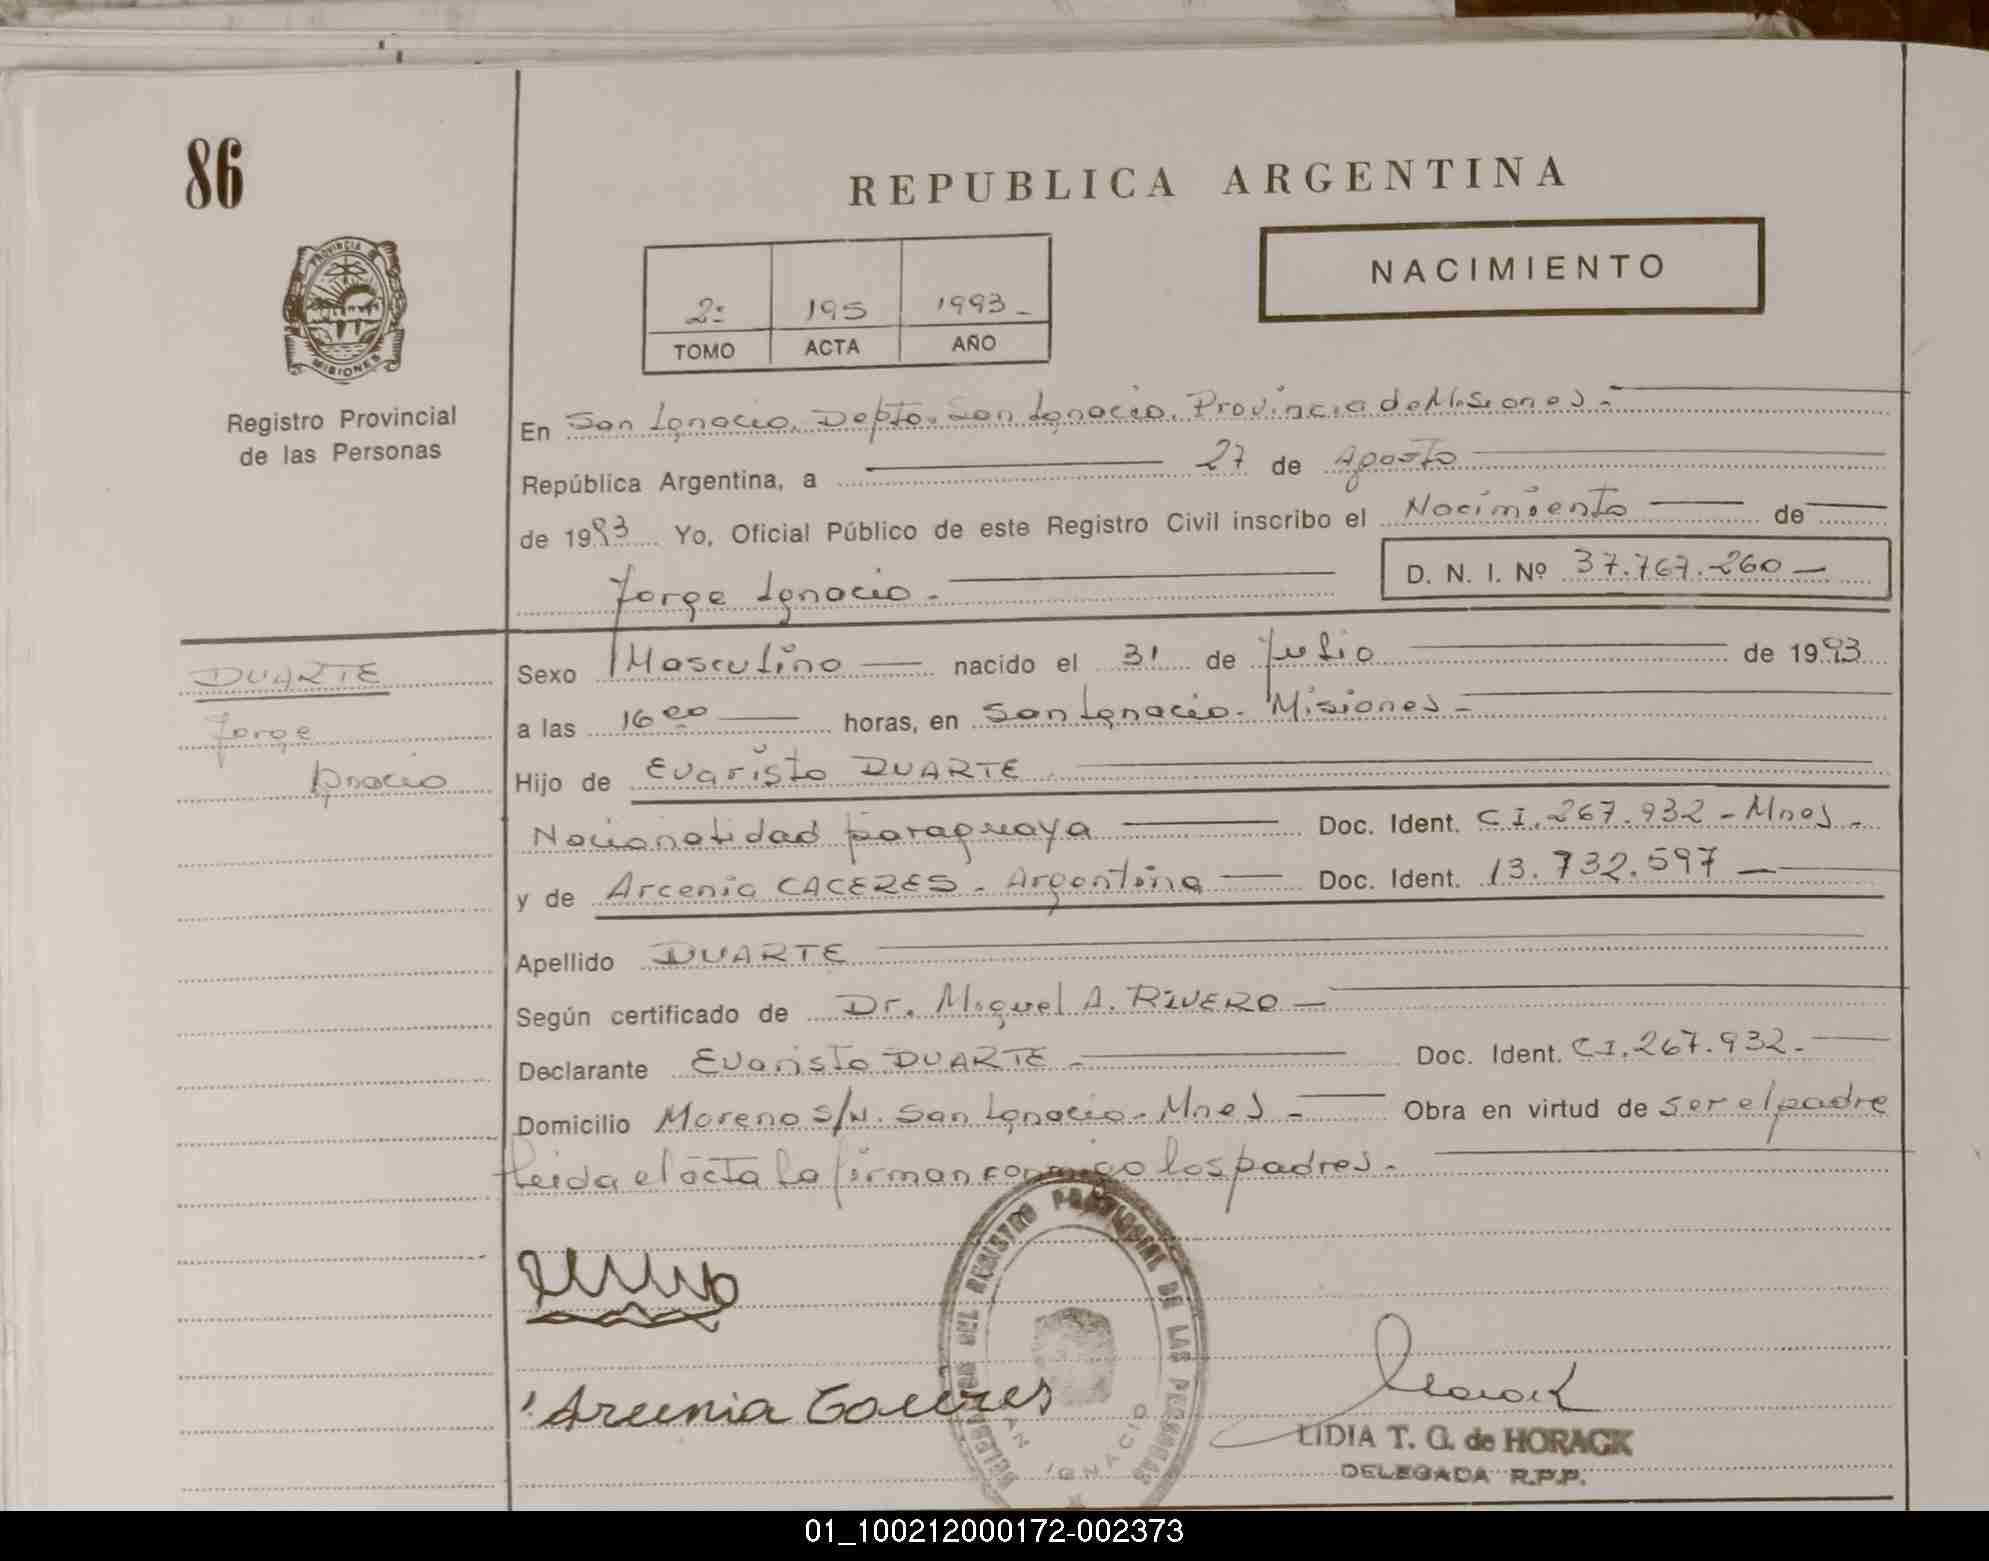 86
REPUBLICA ARGENTINA
NACIMIENTO
PROVINCIA DE
MISIONES
2º 195 1993
TOMO ACTA AÑO
Registro Provincial
de las Personas
En San Ignacio, Depto. San Ignacio. Provincia de Misiones.-
República Argentina, a 27 de Agosto
de 1993 Yo, Oficial Público de este Registro Civil inscribo el Nacimiento de
Jorge Ignacio.-
D. N. I. Nº 37.767.260
DUARTE
Jorge
Ignacio
Sexo Masculino nacido el 31 de Julio de 1993
a las 16 00 horas, en San Ignacio. Misiones-
Hijo de Evaristo DUARTE
Nacionalidad paraguaya Doc. Ident. C.I. 267.932 - Mnes.-
y de Arcenia CACERES. Argentina Doc. Ident. 13.732.597
Apellido DUARTE
Según certificado de Dr. Miguel A. RIVERO
Declarante Evaristo DUARTE Doc. Ident. C.I. 267.932.
Domicilio Moreno s/N. San Ignacio. Mnes - Obra en virtud de ser el padre
leida el acta la firman conmigo los padres.-
DELEGACION DEL REGISTRO PROVINCIAL DE LAS PERSONAS
SAN IGNACIO
Arcenia Caceres
Horack
LIDIA T. G. de HORACK
DELEGADA R.P.P.
01_100212000172-002373